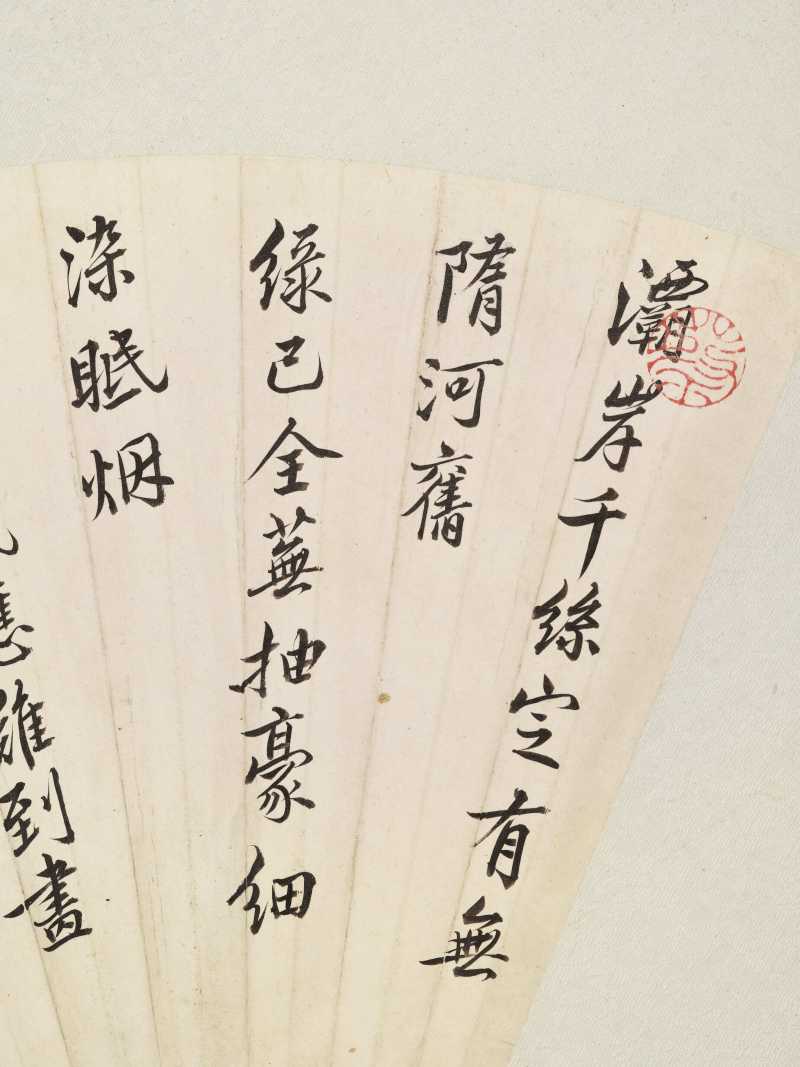 灞岸千絲定有無
隋河舊
綠已全蕪抽豪細
染眠烟
應難到畫